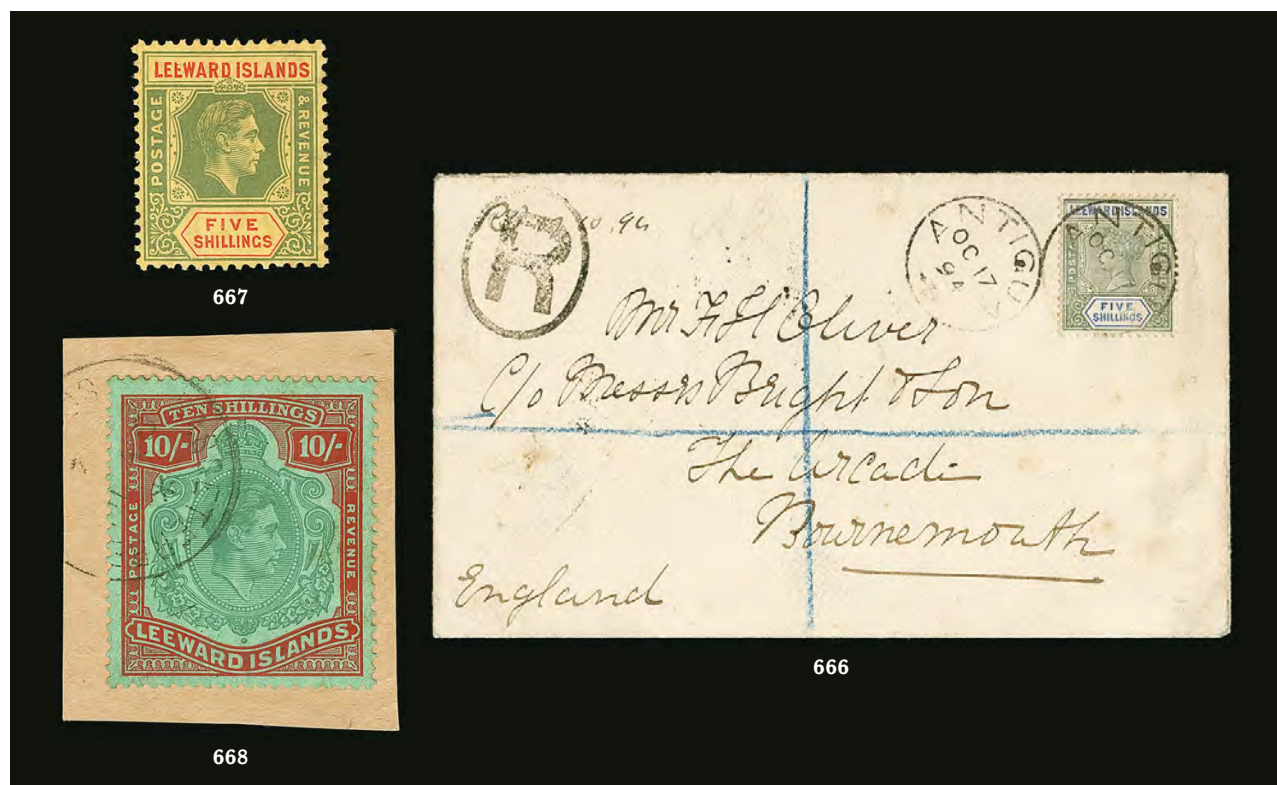 LEEWARD ISLANDS
POSTAGE
& REVENUE
FIVE
SHILLINGS
667
TEN SHILLINGS
10/-
10/-
POSTAGE
REVENUE
LEEWARD ISLANDS
668
R
ANTIGUA
OC 17
94
LEEWARD ISLANDS
ANTIGU
OC 17
POSTAGE
FIVE
SHILLINGS
Mr F H Oliver
C/o Messrs Bright & Son
The Arcade
Bournemouth
England
666